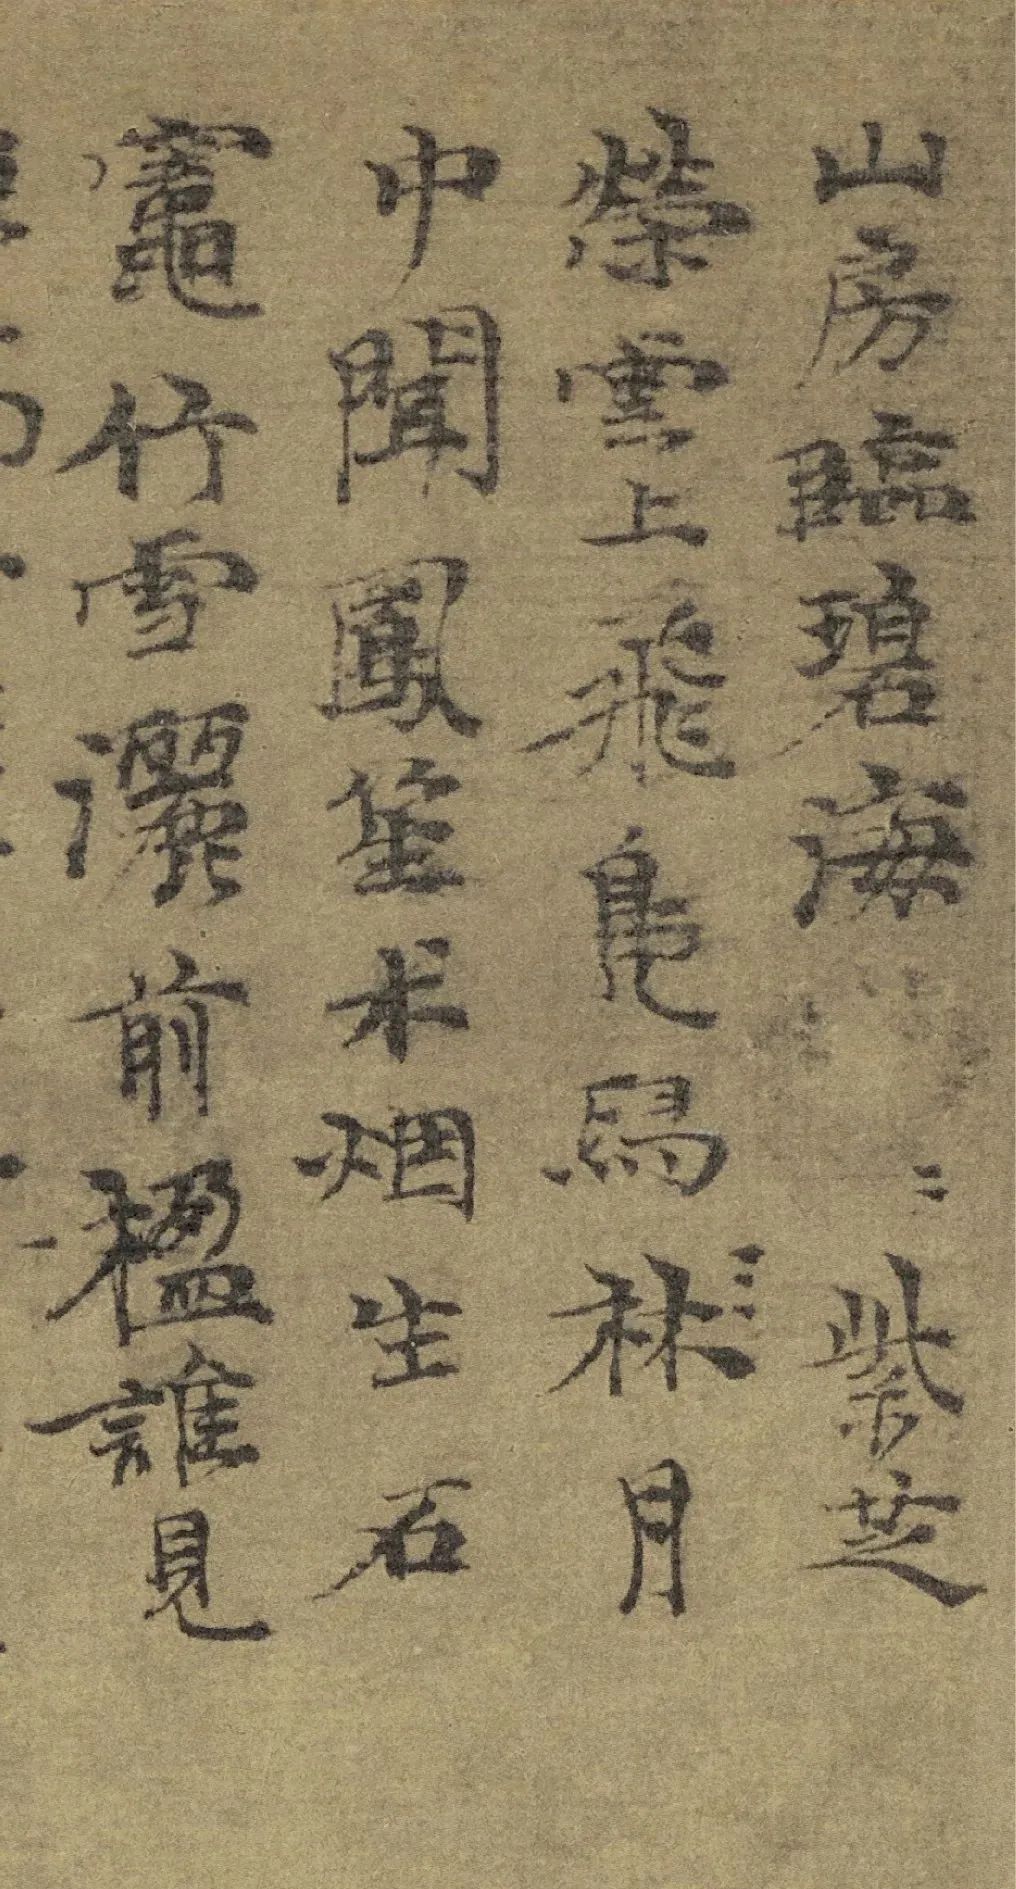 山房臨碧海 紫芝
榮雲上飛鳧舄林月
中聞鳳笙术烟生石
竈竹雪灑前楹誰見